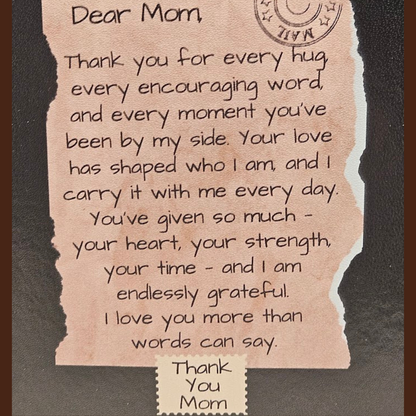 Dear Mom,
MAIL
Thank you for every hug,
every encouraging word,
and every moment you've
been by my side. Your love
has shaped who I am, and I
carry it with me every day.
You've given so much -
your heart, your strength,
your time - and I am
endlessly grateful.
I love you more than
words can say.
Thank
You
Mom